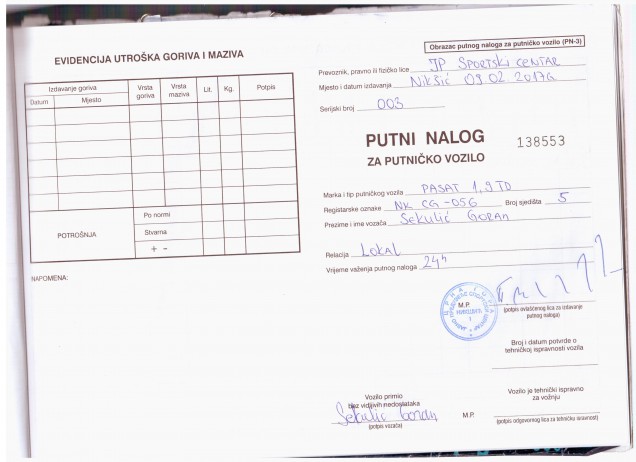 EVIDENCIJA UTROŠKA GORIVA I MAZIVA
Izdavanje goriva
Datum Mjesto
Vrsta goriva
Vrsta maziva
Lit.
Kg.
Potpis
POTROŠNJA
Po normi
Stvarna
+ -
NAPOMENA:
Obrazac putnog naloga za putničko vozilo (PN-3)
Prevoznik, pravno ili fizičko lice JP SPORTSKI CENTAR
Mjesto i datum izdavanja Nikšić 09.02.2017G
Serijski broj 003
PUTNI NALOG
ZA PUTNIČKO VOZILO
138553
Marka i tip putničkog vozila PASAT 1,9 TD
Registarske oznake NK CG-056 Broj sjedišta 5
Prezime i ime vozača SEKULIĆ GORAN
Relacija LOKAL
Vrijeme važenja putnog naloga 24h
M.P.
(potpis ovlašćenog lica za izdavanje
putnog naloga)
Broj i datum potvrde o
tehničkoj ispravnosti vozila
Vozilo primio
bez vidljivih nedostataka
Sekulić Goran
(potpis vozača)
Vozilo je tehnički ispravno
za vožnju
M.P.
(potpis odgovornog lica za tehničku isravnost)